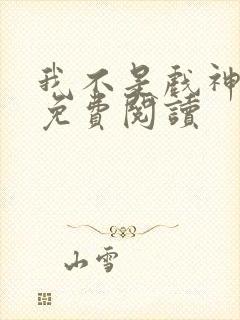 我不是戲神
免費閱讀
山雪